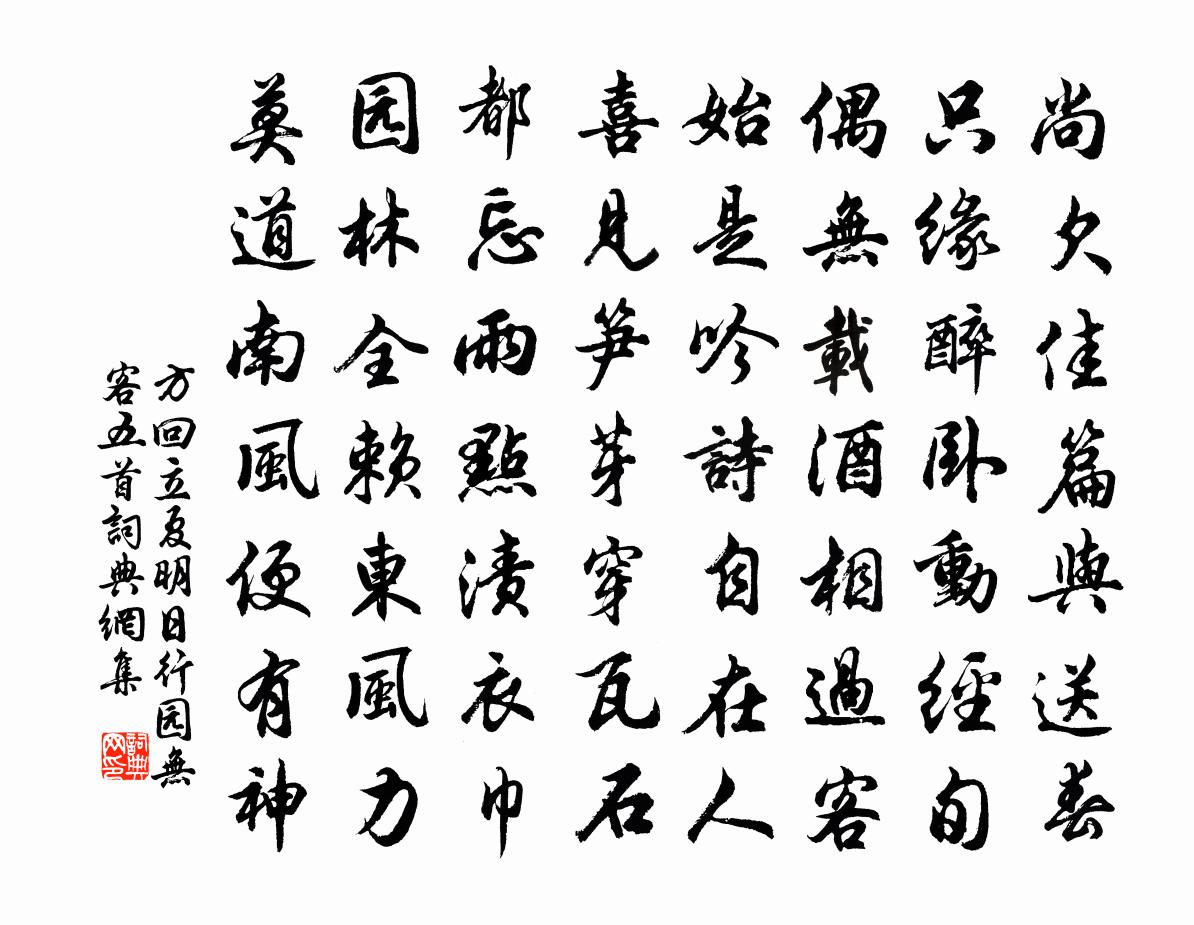 尚欠佳篇與送春
只緣醉卧動經旬
偶無載酒相過客
始是吟詩自在人
喜見笋芽穿瓦石
都忘雨點漬衣巾
园林全賴東風力
莫道南風便有神
方回立夏明日行园無
客五首詞典網集
詞典
网印